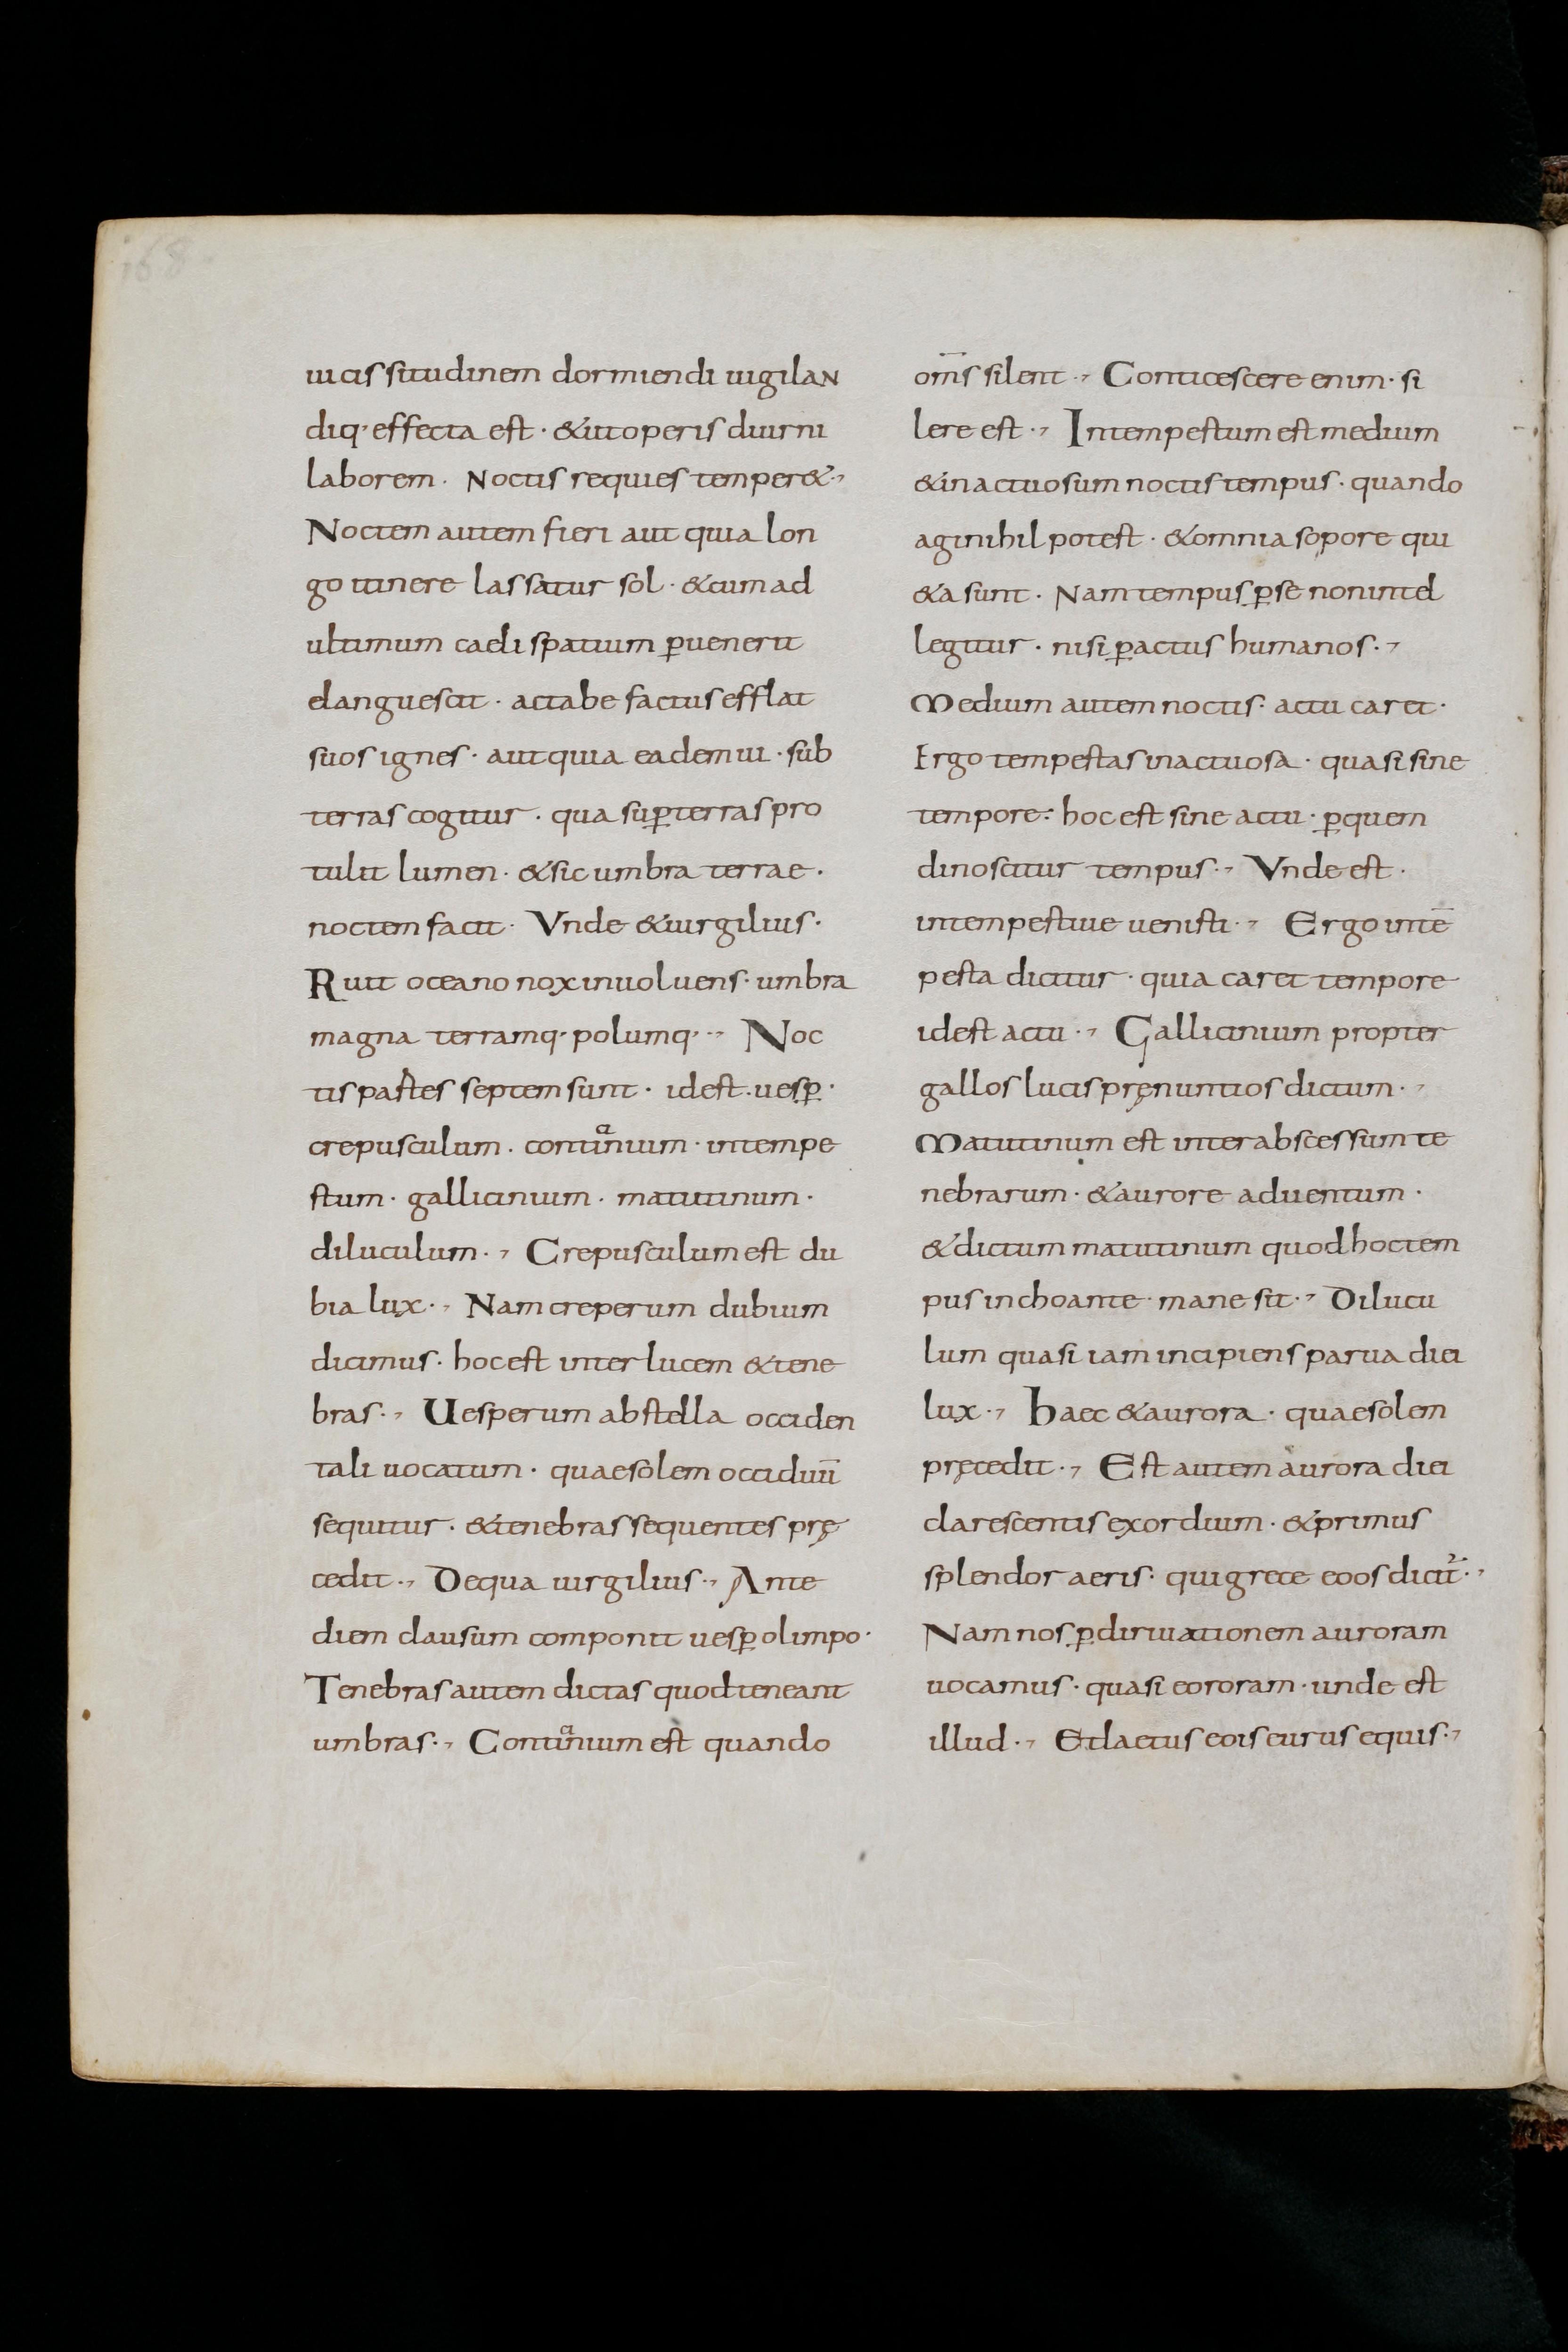 168
uicissitudinem dormiendi uigilan
diq· effecta est · & ut operis diurni
laborem · Noctis requies temper& ·,
Noctem autem fieri aut quia lon
go itinere lassatur sol · & cum ad
ultimum caeli spatium ꝑuenerit
elanguescit · ac tabefactus efflat
suos ignes · aut quia eadem ui · sub
terras cogitur · qua suꝑ terras pro
tulit lumen · & sic umbra terrae ·
noctem facit · Vnde & uirgilius ·
Ruit oceano nox inuoluens · umbra
magna terramq· polumq· ·, Noc
tis partes septem sunt · idest · uesꝑ ·
crepusculum · conticinium · intempe
stum · gallicinium · matutinum ·
diluculum ·, Crepusculum est du
bia lux ·, Nam creperum dubium
dicimus · hoc est inter lucem & tene
bras ·, Uesperum ab stella occiden
tali uocatum · quae solem occiduū
sequitur · & tenebras sequentes prę
cedit ·, De qua uirgilius ·, Ante
diem clausum componit uesꝑ olimpo ·
Tenebras autem dictas quod teneant
umbras ·, Conticinium est quando
om̄s silent ·, Conticescere enim · si
lere est ·, Intempestum est medium
& inactuosum noctis tempus · quando
agi nihil potest · & omnia sopore qui
&a sunt · Nam tempus ꝑ se non intel
legitur · nisi ꝑ actus humanos ·,
Medium autem noctis · actu caret ·
Ergo tempestas inactuosa · quasi sine
tempore · hoc est sine actu · ꝑ quem
dinoscitur tempus ·, Vnde est ·
intempestiue uenisti ·, Ergo intē
pesta dicitur · quia caret tempore
idest actu ·, Gallicinium propter
gallos lucis pręnuntios dictum ·,
Matutinum est inter abscessum te
nebrarum · & aurore aduentum ·
& dictum matutinum quod hoc tem
pus inchoante · mane sit ·, Dilucu
lum quasi iam incipiens parua diei
lux ·, Haec & aurora · quae solem
pręcedit ·, Est autem aurora diei
clarescentis exordium · & primus
splendor aeris · qui grece eoos dicit᷑ ·,
Nam nos ꝑ diriuationem auroram
uocamus · quasi eororam · unde est
illud ·, Et laetus eois eurus equis ·,